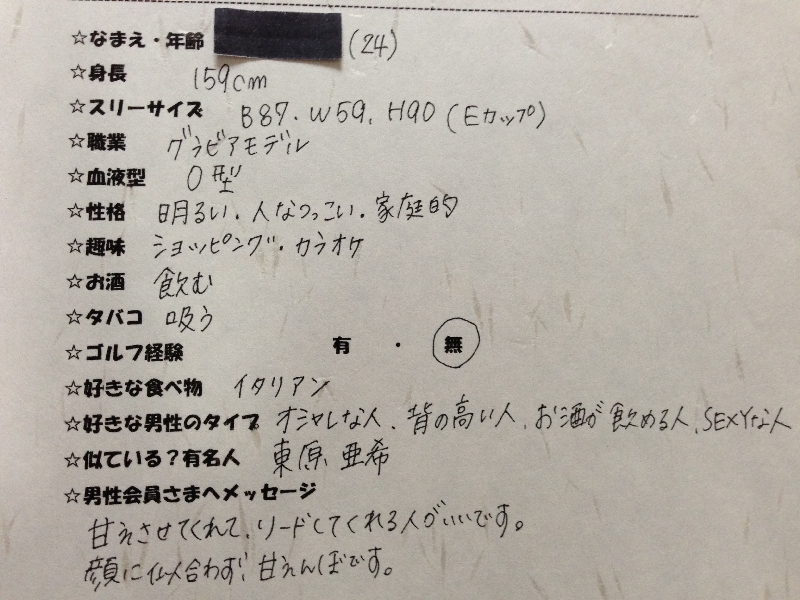 ☆なまえ・年齢 (24)
☆身長 159cm
☆スリーサイズ B87.W59.H90(Eカップ)
☆職業 グラビアモデル
☆血液型 O型
☆性格 明るい・人なつっこい・家庭的
☆趣味 ショッピング・カラオケ
☆お酒 飲む
☆タバコ 吸う
☆ゴルフ経験 有・無
☆好きな食べ物 イタリアン
☆好きな男性のタイプ オシャレな人、背の高い人、お酒が飲める人、SEXYな人
☆似ている?有名人 東原亜希
☆男性会員さまへメッセージ
甘えさせてくれて、リードしてくれる人がいいです。
顔に似合わず、甘えんぼです。